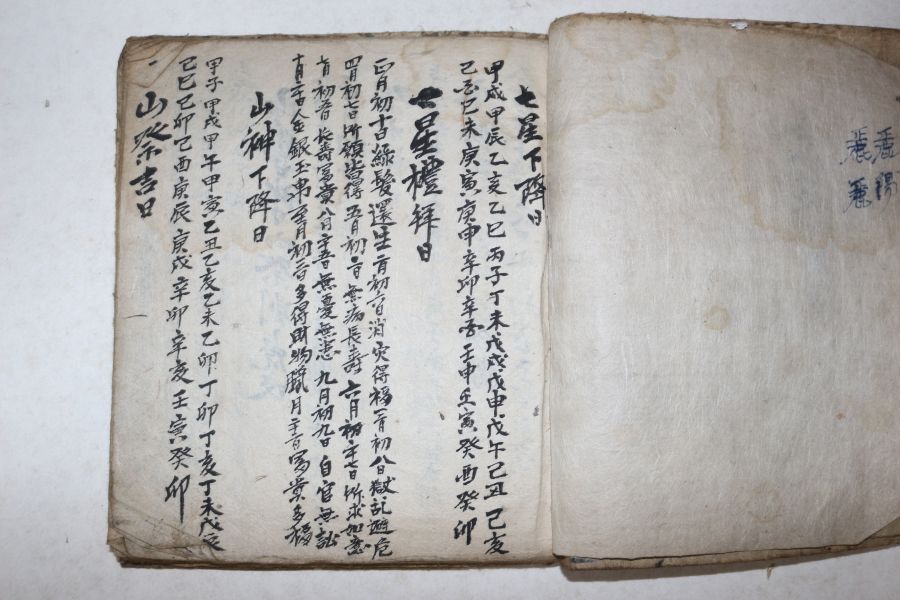 七星下降日
甲戌甲辰乙亥乙巳丙子丁未戊戌戊申戊午己丑己亥
己未庚寅庚申辛卯壬申壬寅癸酉癸卯
七星禮拜日
正月初十日綠髮還生二月初六日消灾得福三月初八日獄乱避危
四月初七日所願皆得五月初二日無病長壽六月初二十七日所求如意
七月初五日長壽富貴八月二十五日無憂無患九月初九日自官無訟
十月二十日金銀玉帛至月初三日多得財物臘月二十二日
山神下降日
甲子甲戌甲午甲寅乙丑乙亥乙未乙卯丁卯丁亥丁未戊辰
己巳己卯己酉庚辰庚戌辛卯辛亥壬寅癸卯
山祭吉日